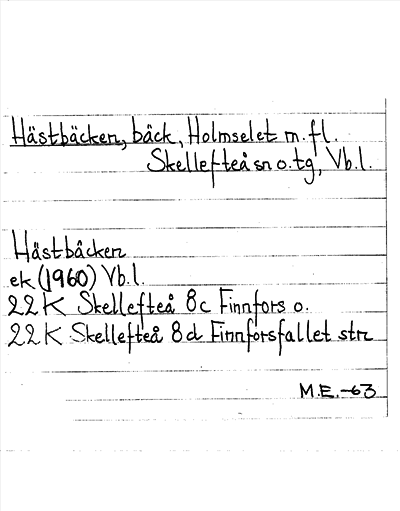 Hästbäcken, bäck, Holmselet m.fl.
Skellefteå sn o. tg, Vb.l.
Hästbäcken
ek (1960) Vb.l.
22 K Skellefteå 8c Finnfors o.
22 K Skellefteå 8d Finnforsfallet str
M.E.-63